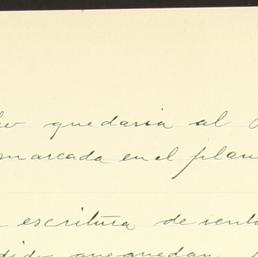 quedaria al
marcada en el plan
escritura de vent
que quedan